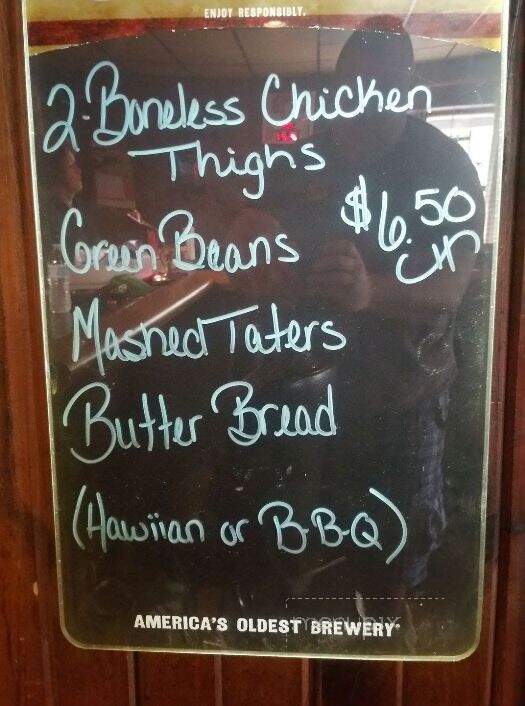 ENJOY RESPONSIBLY.
2-Boneless Chicken
Thighs
$6.50
Green Beans
Mashed Taters
Butter Bread
(Hawiian or B-B-Q)
AMERICA'S OLDEST BREWERY